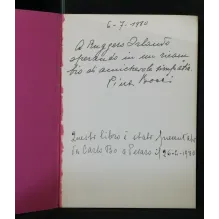 6-7-1980
A Ruggero Orlando
sperando in un ricam
bio di amichevole simpatia
Piero
Questo libro è stato presentato
da Carlo Bo a Pesaro il 26-6-1980